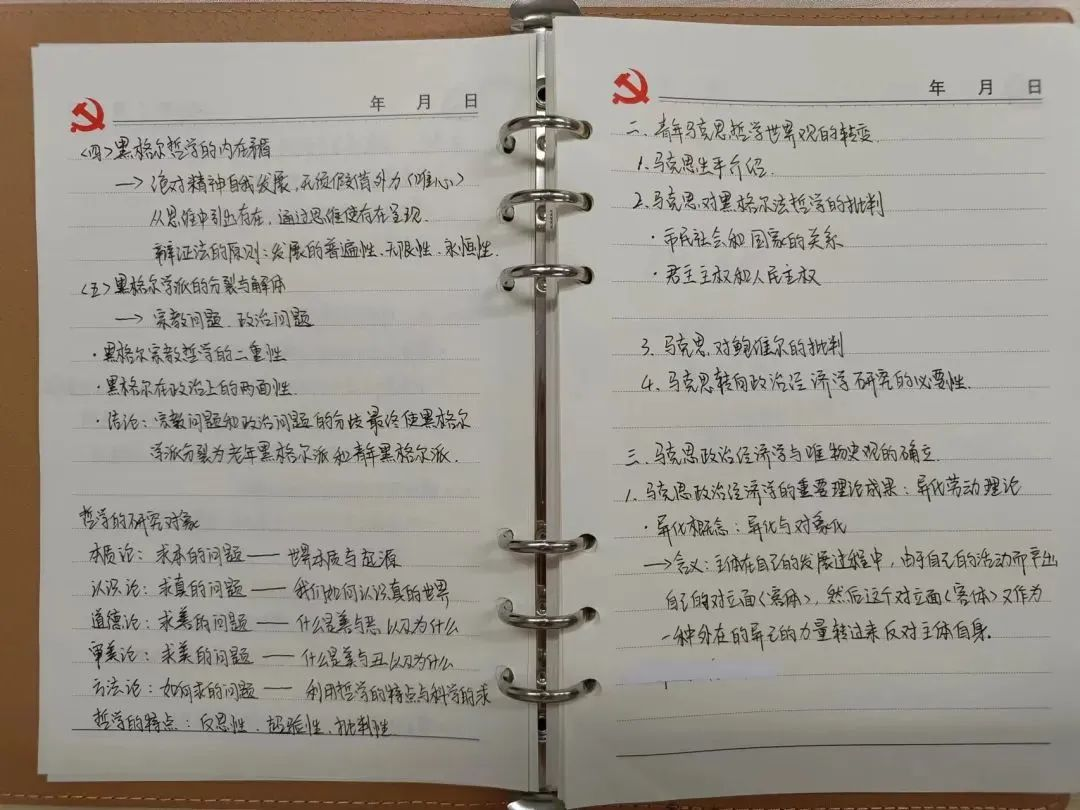 年 月 日
<四>黑格尔哲学的内在矛盾
→ 绝对精神自我发展,无须假借外力(唯心)
从思维中引出存在,通过思维使存在呈现.
辩证法的原则:发展的普遍性、无限性、永恒性.
<五>黑格尔学派的分裂与解体
→ 宗教问题、政治问题
·黑格尔宗教哲学的二重性
·黑格尔在政治上的两面性.
·结论:宗教问题和政治问题的分歧最终使黑格尔
学派分裂为老年黑格尔派和青年黑格尔派.
哲学的研究对象
本质论:求本的问题 —— 世界本质与起源
认识论:求真的问题 —— 我们如何认识真的世界
道德论:求善的问题 —— 什么是善与恶以及为什么
审美论:求美的问题 —— 什么是美与丑以及为什么
方法论:如何求的问题 —— 利用哲学的特点与科学的求
哲学的特点:反思性、超验性、批判性
年 月 日
二、青年马克思哲学世界观的转变.
1.马克思生平介绍.
2.马克思对黑格尔法哲学的批判
·市民社会和国家的关系
·君主主权和人民主权
3.马克思对鲍维尔的批判
4.马克思转向政治经济学研究的必要性.
三、马克思政治经济学与唯物史观的确立.
1.马克思政治经济学的重要理论成果:异化劳动理论
·异化概念:异化与对象化
→含义:主体在自己的发展过程中,由于自己的活动而产出
自己的对立面<客体>,然后这个对立面<客体>又作为
一种外在的异己的力量转过来反对主体自身.